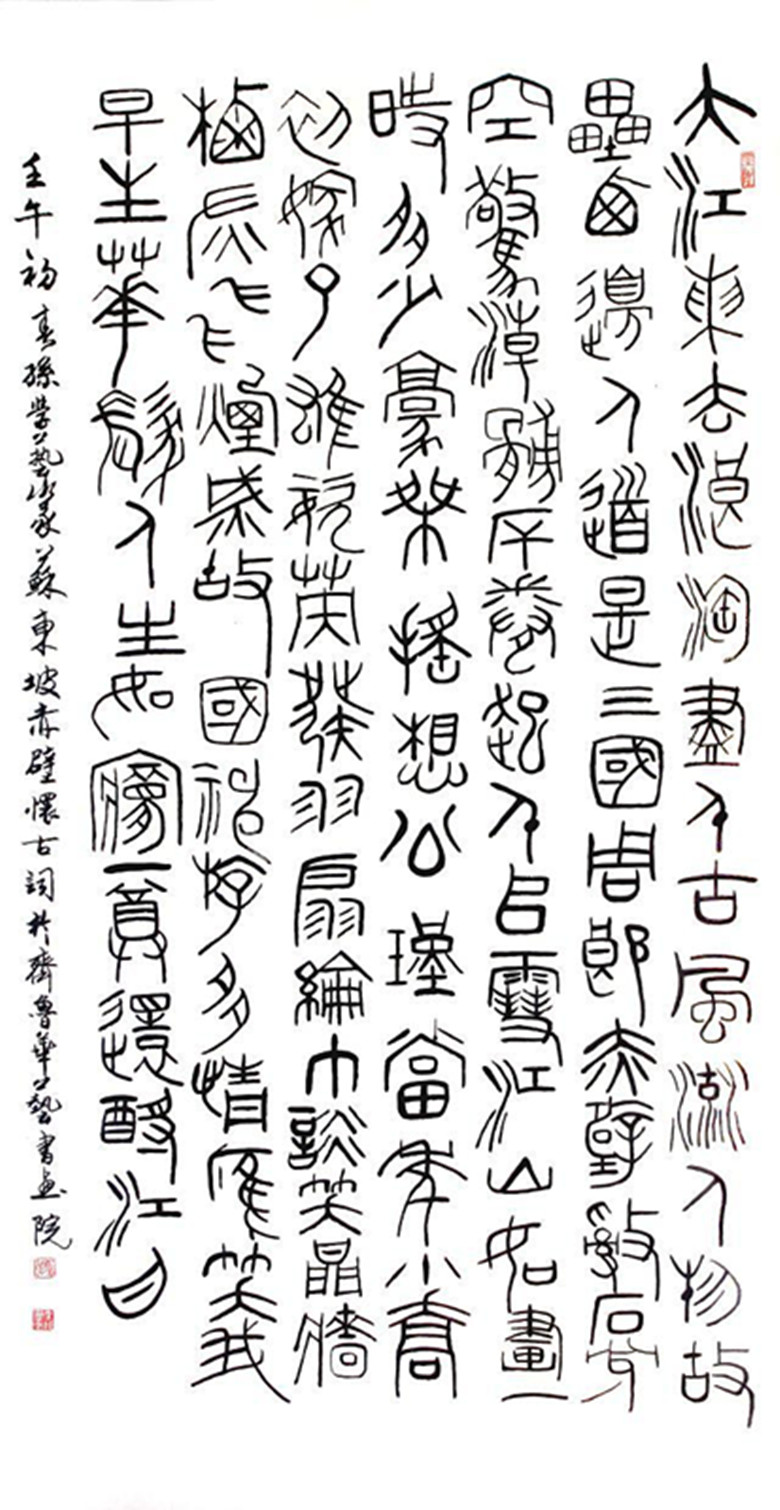 大江東去浪淘盡千古風流人物故
壘西邊人道是三國周郎赤壁亂石穿
空驚濤拍岸卷起千堆雪江山如畫一
時多少豪桀搖想公瑾當年小喬
初嫁了雄姿英發羽扇綸巾談笑間檣
櫓灰飛煙滅故國神遊多情應笑我
早生華髮人生如夢一尊還酹江月
壬午初春孫學藝篆蘇東坡赤壁懷古詞於齊魯華藝書画院